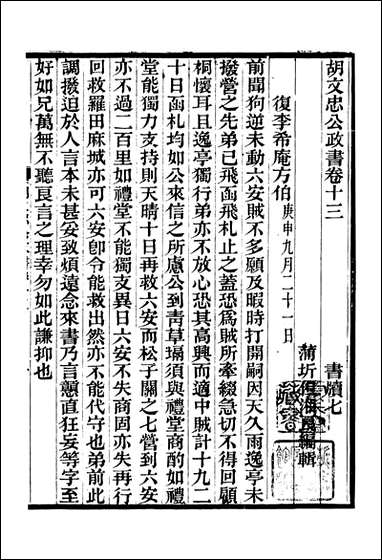 胡文忠公政書卷十三
書牘七
蒲圻
編輯
復李希庵方伯庚申九月二十一日
前聞狗逆未動六安賊不多願及暇時打開嗣因天久雨逸亭未
撥營之先弟已飛函飛札止之蓋恐為賊所牽綴急切不得回顧
桐懷耳且逸亭獨行弟亦不放心恐其高興而適中賊計十九二
十日函札均如公來信之所慮公到青草塥須與禮堂商酌如禮
堂能獨力支持則天晴十日再救六安而松子關之七營到六安
亦不過二百里如禮堂不能獨支異日六安不失商固亦失再行
回救羅田麻城亦可六安卽令能救出然亦不能代守也弟前此
調撥迫於人言本未甚妥致煩遠念來書乃言戇直狂妄等字至
好如兄萬無不聽良言之理幸勿如此謙抑也